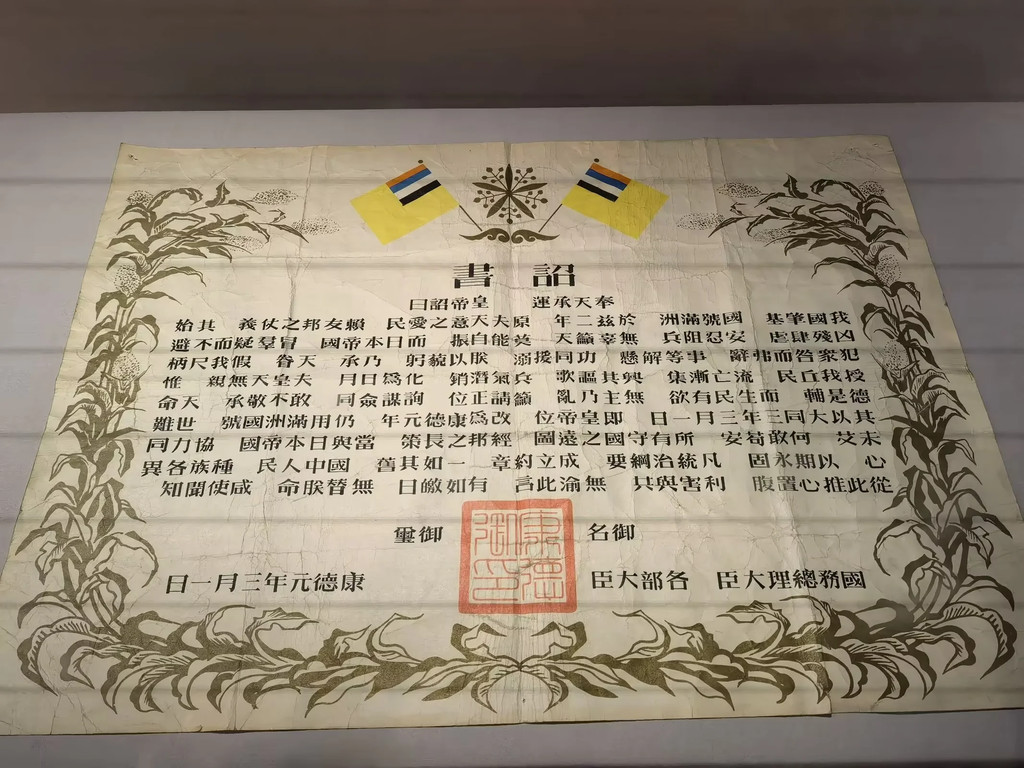 詔書
奉天承運 皇帝詔曰
我國肇基 國號滿洲 於茲二年 原夫天意之愛民 賴友邦之仗義 其始
凶殘肆虐 安忍阻兵 無辜籲天 莫能自振 而日本帝國 冒羣疑而不避
犯衆咎而弗辭 事等解懸 功同援溺 朕以藐躬 乃承 天眷 假我尺柄
授我丘民 流亡漸集 興其謳歌 兵氣潛銷 化爲日月 夫皇天無親 惟
德是輔 而生民有欲 無主乃亂 籲請正位 詢謀僉同 敢不敬承 天命
其以大同三年三月一日 即皇帝位 改爲康德元年 仍用滿洲國號 世難
未艾 何敢苟安 所有守國之遠圖 經邦之長策 當與日本帝國 協力同
心 以期永固 凡統治綱要 成立約章 一如其舊 國中人民 種族各異
從此推心置腹 利害與共 無渝此言 有如皦日 無替朕命 咸使聞知
御名 御璽
康德御印
國務總理大臣 各部大臣 康德元年三月一日